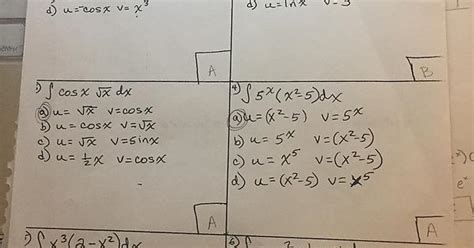 d) u=-cosx v=x³
A
d) u=lnx v=3
B
3) ∫cosx √x dx
a) u=√x v=cosx
b) u=cosx v=√x
c) u=√x v=sinx
d) u=½x v=cosx
A
4) ∫5ˣ(x²-5)dx
a) u=(x²-5) v=5ˣ
b) u=5ˣ v=(x²-5)
c) u=x⁵ v=(x²-5)
d) u=(x²-5) v=x⁵
A
∫x³(2-x²)dx
eˣ